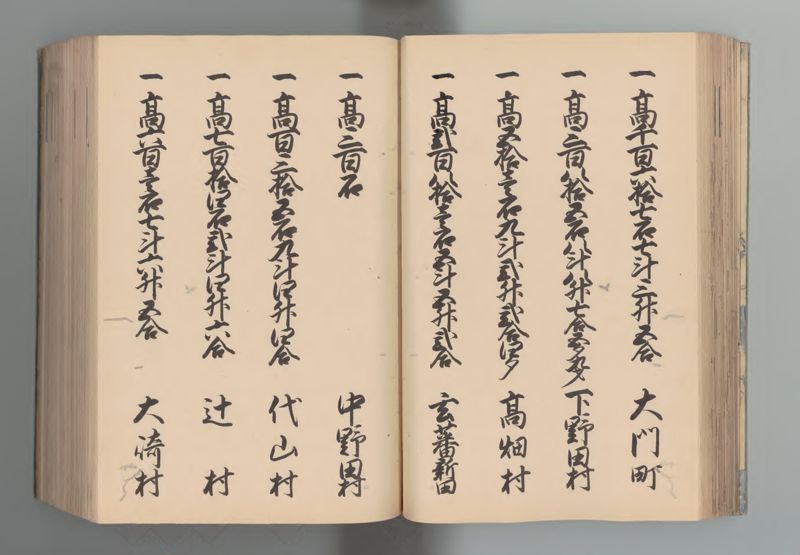 一 髙千百六拾七石七斗三升五合 大門町
一 髙三百八拾五石八斗八升七合 下野田村
一 髙五拾壱石九斗弐升弐合四夕 髙畑村
一 髙弐百八拾壱石五斗五升弐合 玄蕃新田
一 髙三百石 中野田村
一 髙百三拾五石九斗四升四合 代山村
一 髙七百拾四石弐斗四升六合 辻村
一 髙六百壱石七斗六升五合 大崎村